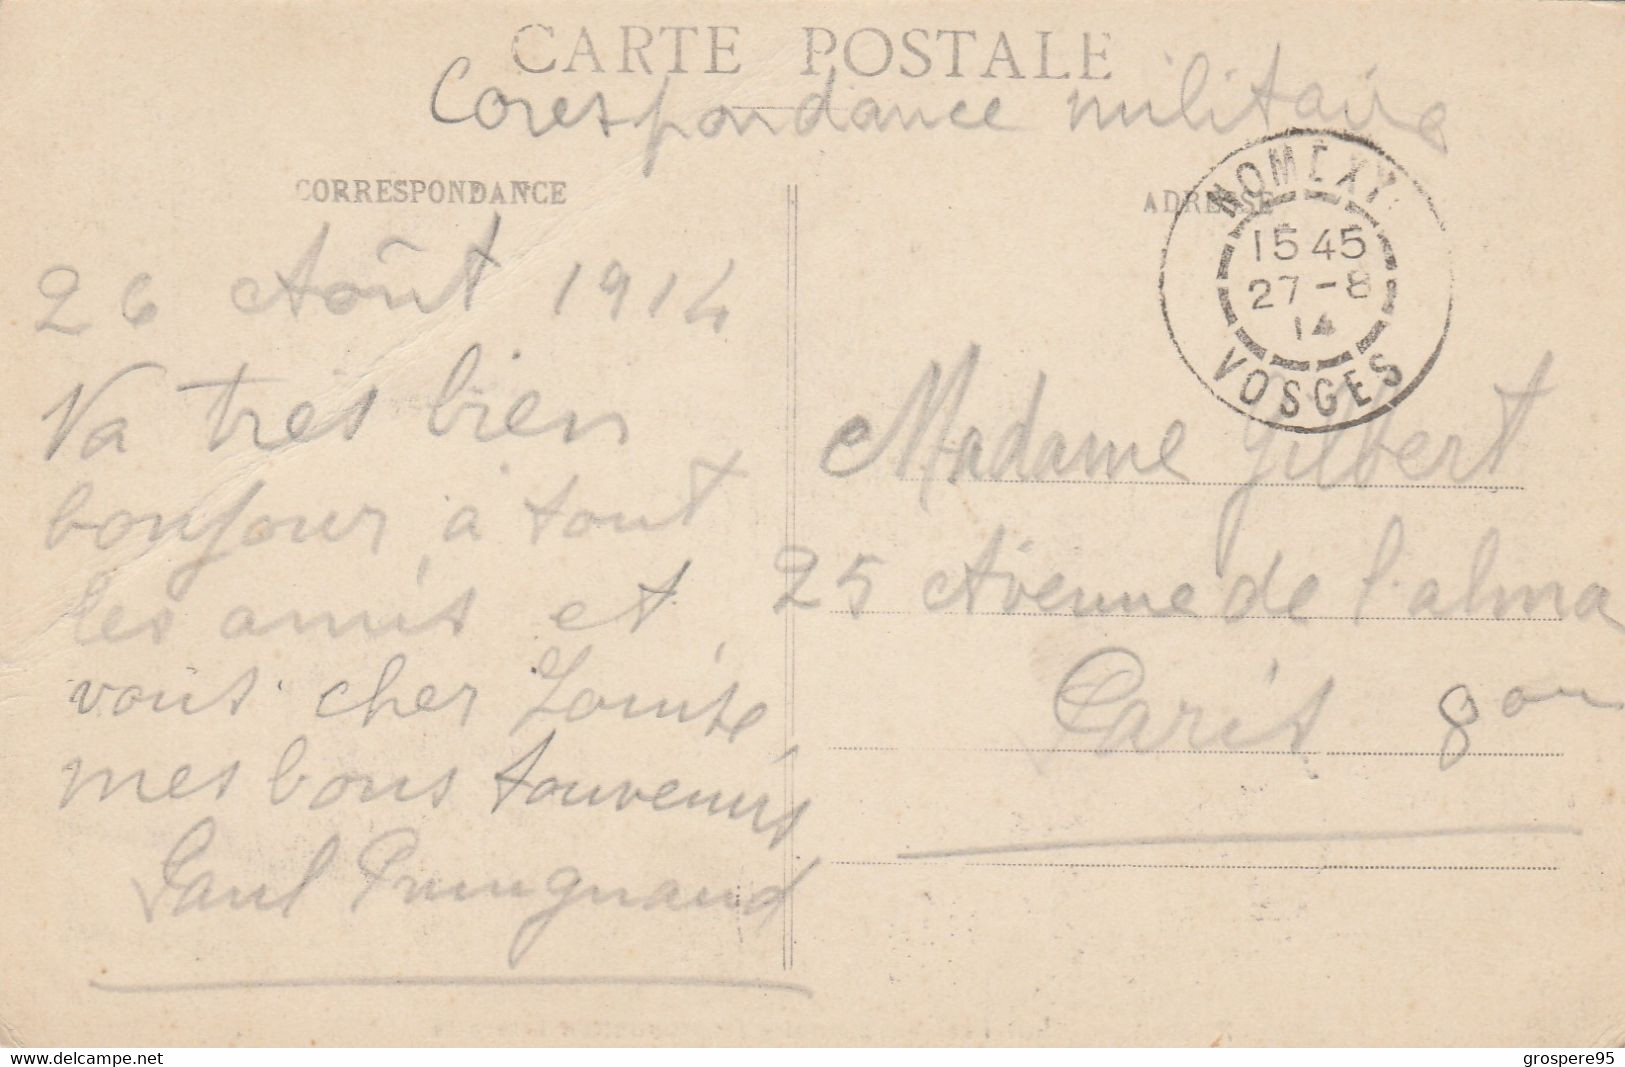 CARTE POSTALE
Corespondance militaire
CORRESPONDANCE
ADRESSE
NOMEXY
15 45
27 - 8
14
VOSGES
26 Août 1914
Va tres bien
bonjour à tout
les amis et
vous cher Louise
mes bons souvenirs
Paul
Madame Gilbert
25 Avenue de l'alma
Paris 8
www.delcampe.net
grospere95